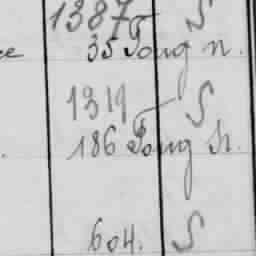 1387 S
35 Tong n.
1319 S
186 Tong n.
604. S